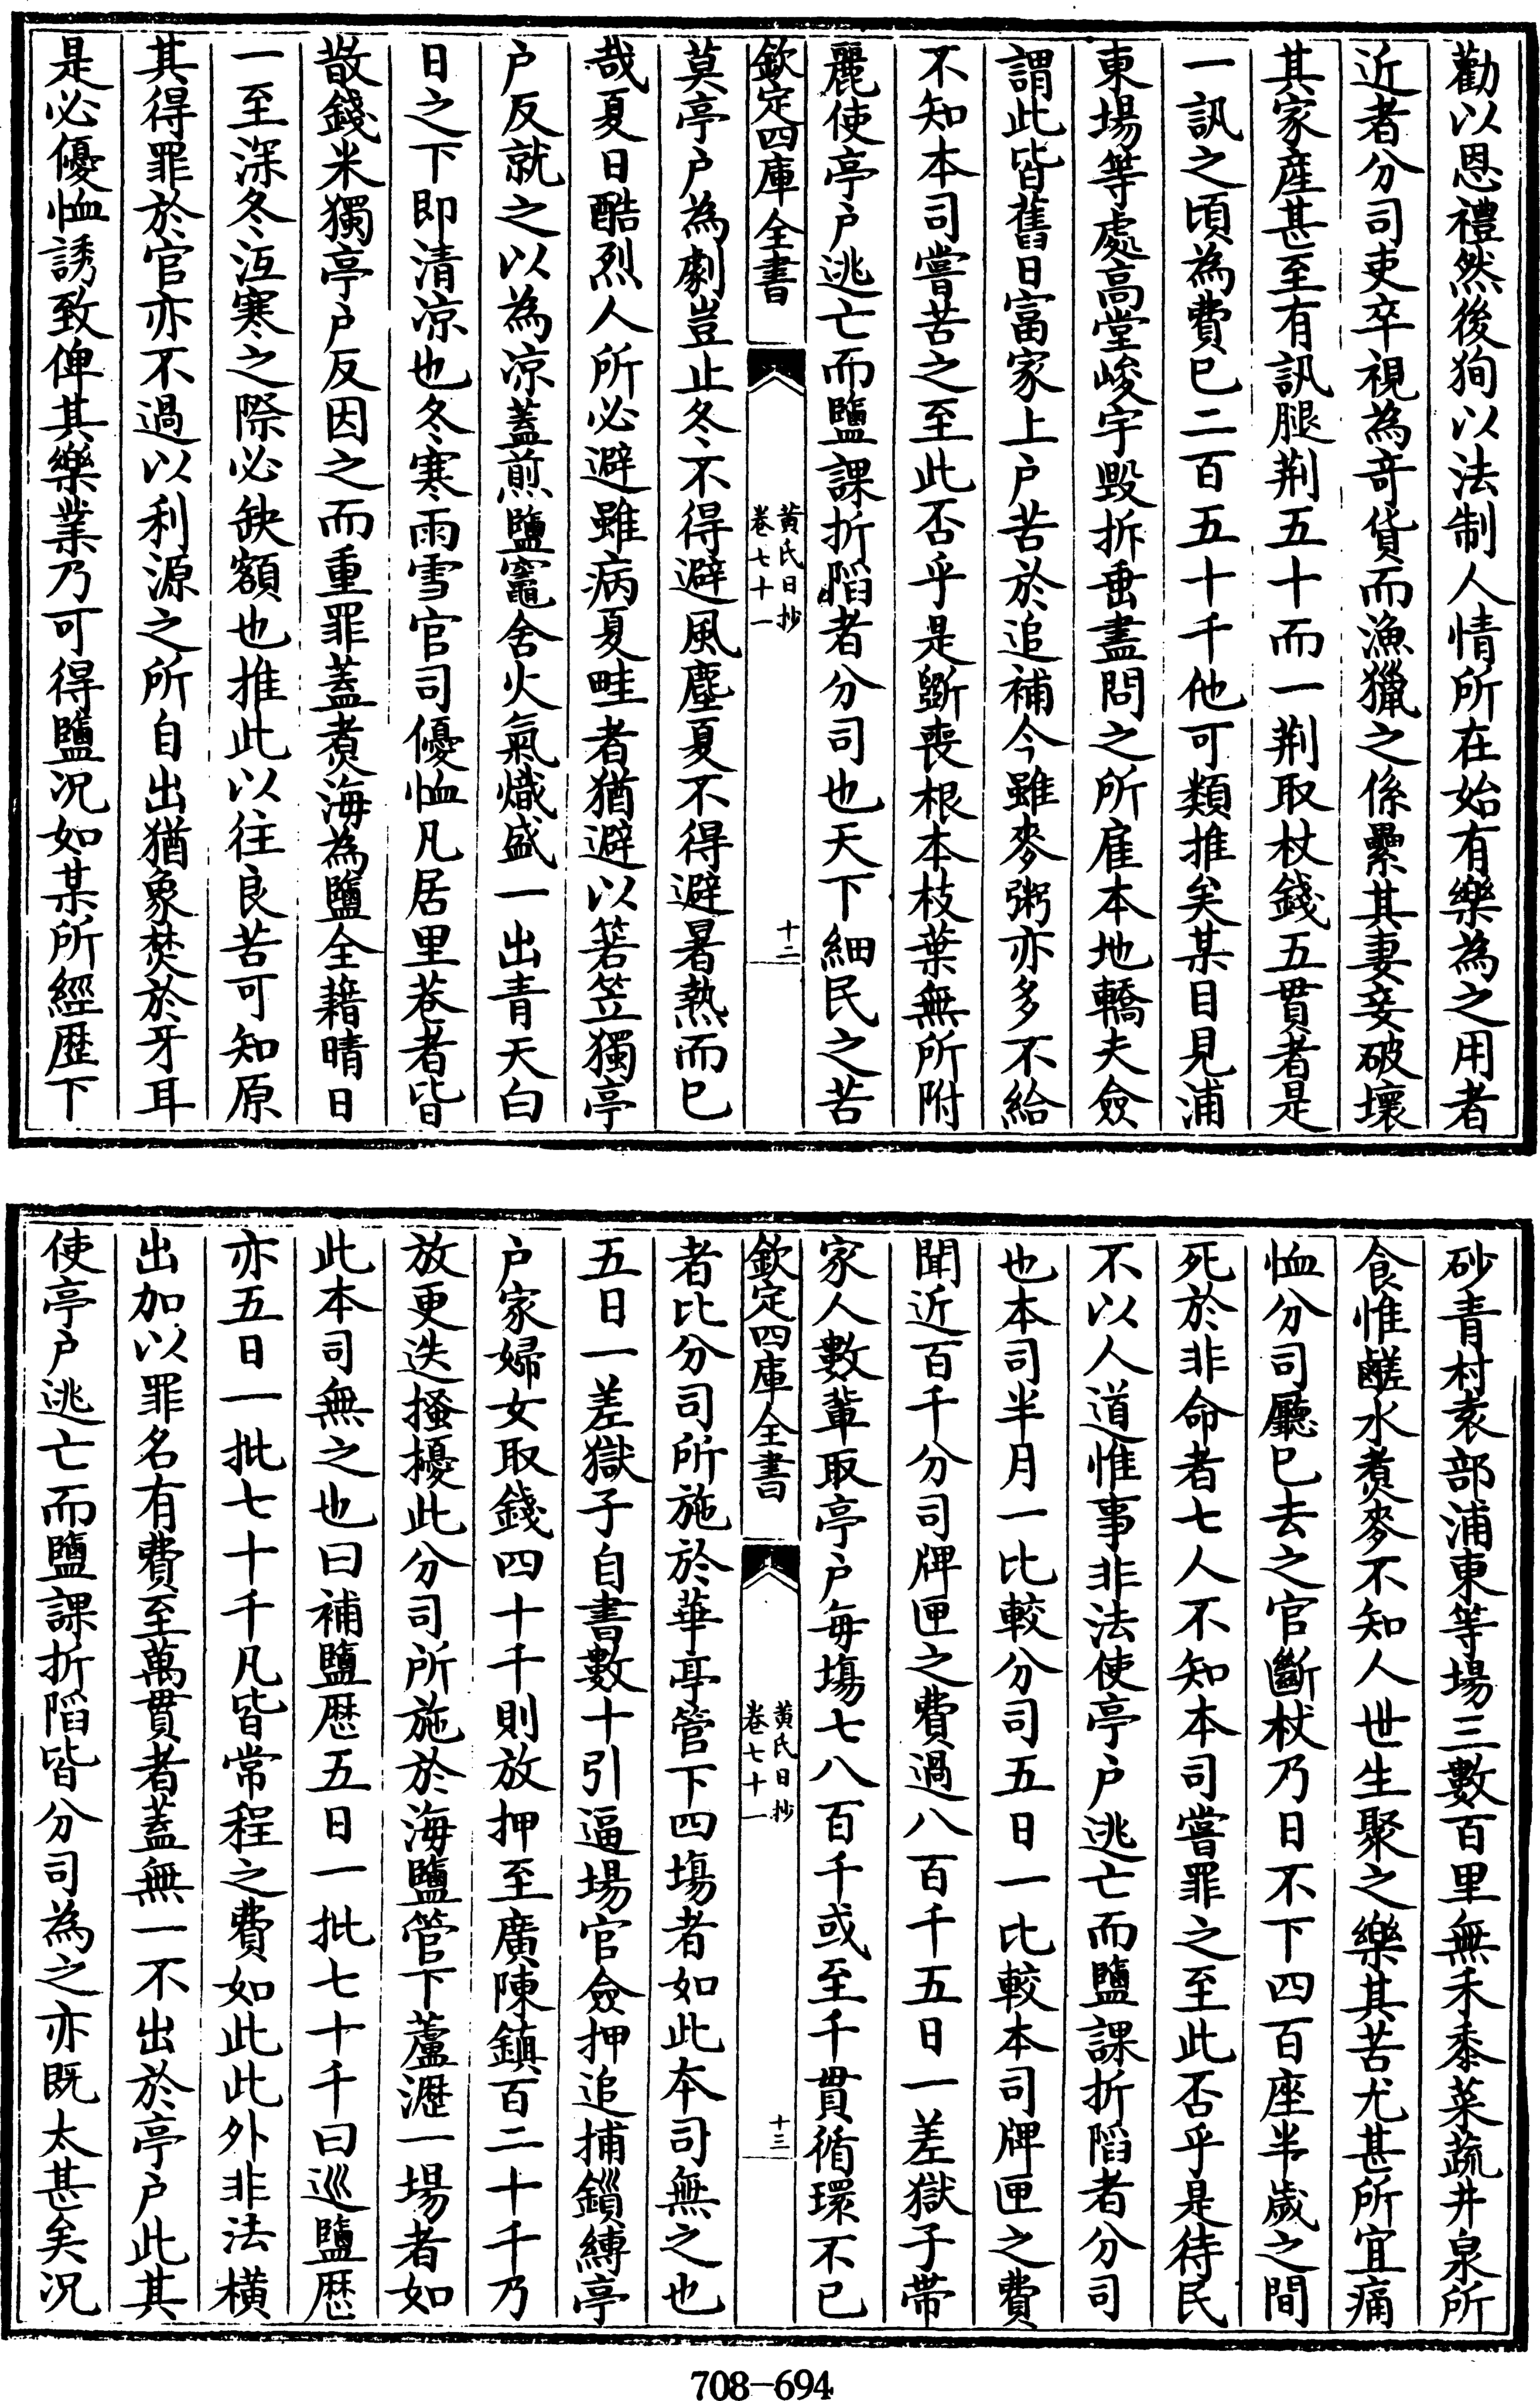 勸以恩禮然後狥以法制人情所在始有樂為之用者
近者分司吏卒視為竒貨而漁獵之係纍其妻妾破壞
其家産甚至有訊腿荆五十而一荆取杖錢五貫者是
一訊之頃為費已二百五十千他可類推矣某目見浦
東場等處高堂峻宇毁拆垂盡問之所雇本地轎夫僉
謂此皆舊日富家上户苦於追補今雖麥粥亦多不給
不知本司嘗苦之至此否乎是斵喪根本枝葉無所附
麗使亭户逃亡而鹽課折䧟者分司也天下細民之苦
欽定四庫全書
黄氏日抄
卷七十一
十二
莫亭户為劇豈止冬不得避風塵夏不得避暑熱而已
哉夏日酷烈人所必避雖病夏畦者猶避以箬笠獨亭
户反就之以為凉蓋煎鹽竈舍火氣熾盛一出青天白
日之下即清凉也冬寒雨雪官司優恤凡居里巷者皆
散錢米獨亭户反因之而重罪蓋煑海為鹽全藉晴日
一至深冬沍寒之際必缺額也推此以往良苦可知原
其得罪於官亦不過以利源之所自出猶象焚於牙耳
是必優恤誘致俾其樂業乃可得鹽况如某所經歴下
砂青村袁部浦東等場三數百里無禾黍菜蔬井泉所
食惟鹺水煑麥不知人世生聚之樂其苦尤甚所宜痛
恤分司廳已去之官斷杖乃日不下四百座半歲之間
死於非命者七人不知本司嘗罪之至此否乎是待民
不以人道惟事非法使亭户逃亡而鹽課折䧟者分司
也本司半月一比較分司五日一比較本司牌匣之費
聞近百千分司牌匣之費過八百千五日一差獄子帶
家人數輩取亭户每塲七八百千或至千貫循環不已
欽定四庫全書
黄氏日抄
卷七十一
十三
者比分司所施於華亭管下四塲者如此本司無之也
五日一差獄子自書數十引逼場官僉押追捕鎻縛亭
户家婦女取錢四十千則放押至廣陳鎮百二十千乃
放更迭搔擾此分司所施於海鹽管下蘆瀝一場者如
此本司無之也曰補鹽歴五日一批七十千曰巡鹽歴
亦五日一批七十千凡皆常程之費如此此外非法横
出加以罪名有費至萬貫者蓋無一不出於亭户此其
使亭户逃亡而鹽課折䧟皆分司為之亦既太甚矣况
708-694